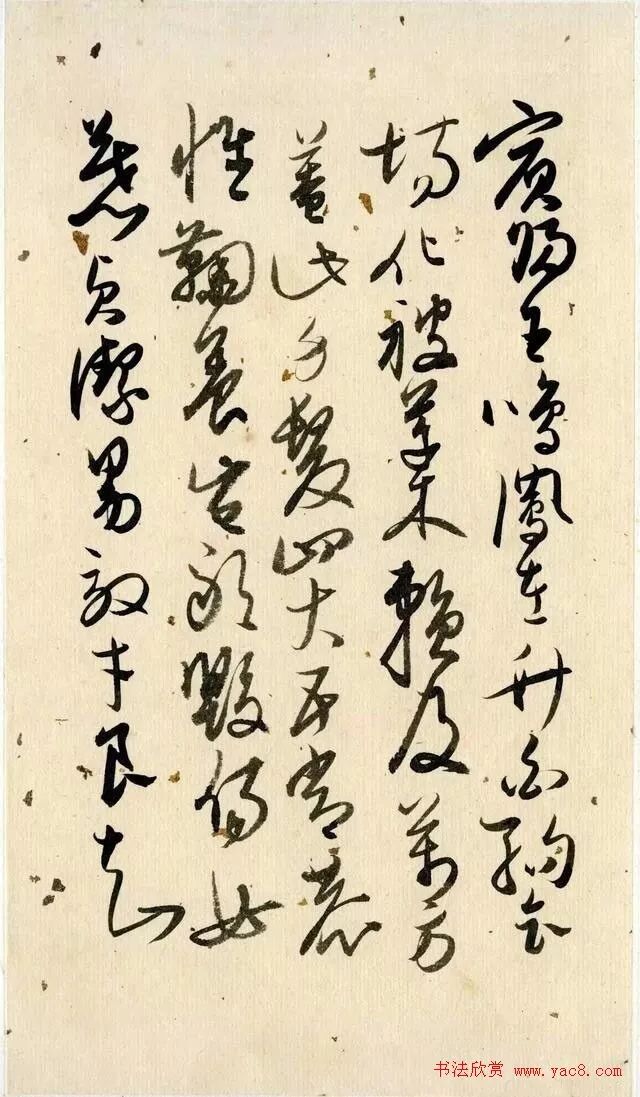 賓歸王鳴鳳在竹白駒食
場化被草木賴及萬方
蓋此身髮四大五常恭
惟鞠養豈敢毀傷女
慕貞潔男效才良知
书法欣赏 www.yac8.com